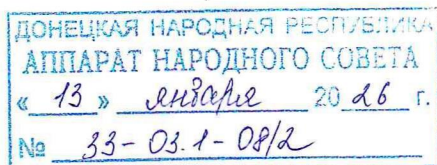 ДОНЕЦКАЯ НАРОДНАЯ РЕСПУБЛИКА
АППАРАТ НАРОДНОГО СОВЕТА
« 13 » января 2026 г.
№ 33-03.1-08/2